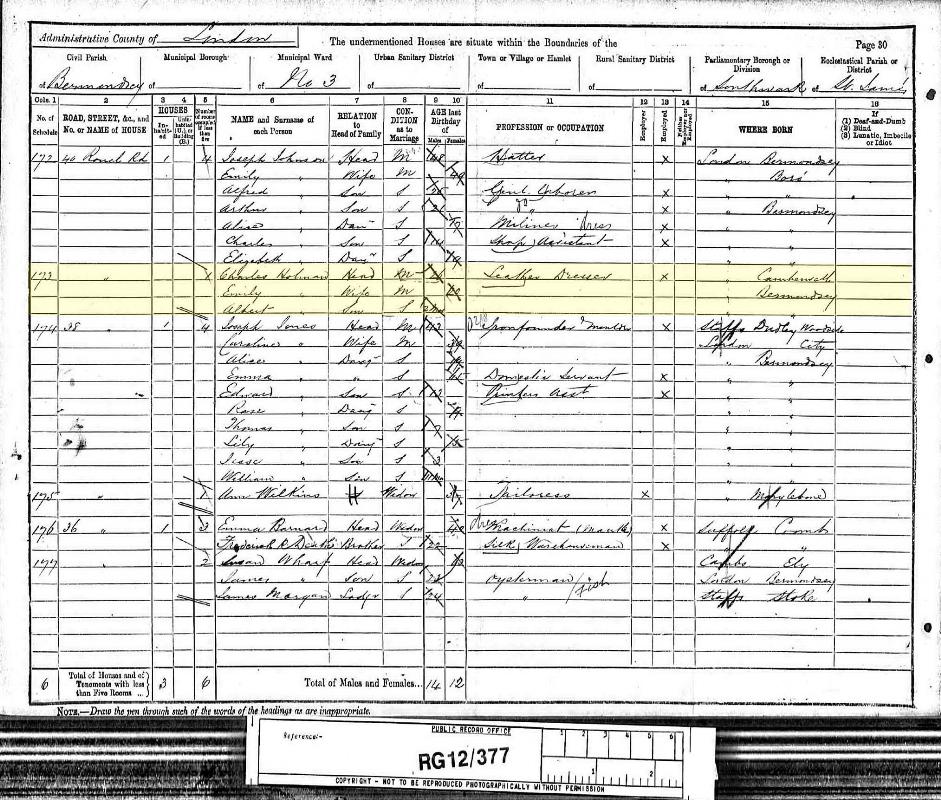 Administrative County of London
The undermentioned Houses are situate within the Boundaries of the
Page 30
Civil Parish
Municipal Borough
Municipal Ward
Urban Sanitary District
Town or Village or Hamlet
Rural Sanitary District
Parliamentary Borough or Division
Ecclesiastical Parish or District
of Bermondsey of of No 3 of of of of Southwark of St. James
Cols. 1 2 3 4 5 6 7 8 9 10 11 12 13 14 15 16
No. of Schedule
ROAD, STREET, &c., and No. or NAME of HOUSE
HOUSES
Inhabited
Uninhabited (U.), or Building (B.)
Number of rooms occupied if less than five
NAME and Surname of each Person
RELATION to Head of Family
CONDITION as to Marriage
AGE last Birthday of
Males Females
PROFESSION or OCCUPATION
Employer
Employed
Neither Employer nor Employed
WHERE BORN
If
(1) Deaf-and-Dumb
(2) Blind
(3) Lunatic, Imbecile or Idiot
172 40 Rd 1 4 Joseph Johnson Head M 48 Hatter x London Bermondsey
Emily " Wife M 49 " Boro'
Alfred " Son S x "
Arthur " Son S 21 do x " Bermondsey
Alice " Daur S x "
Charles " Son S Shop Assistant x "
Elizabeth " Daur S 9 "
173 " 1 Charles Holman Head M Leather Dresser x " Camberwell
Emily " Wife M " Bermondsey
Albert " Son S "
174 38 " 1 4 Joseph Jones Head M 42 Ironfounder Moulder x Staffs Dudley Woodside
Caroline " Wife M London City
Alice " Daur S " Bermondsey
Emma " " S 15 Domestic Servant x "
Edward " Son S 13 Printers Asst x "
Rose " Daug S "
Thomas " Son S 7 "
Lily " Daug S 5 "
Jesse " Son S 3 "
William " Son S "
175 " 1 Ann Wilkins H Widow Tailoress x " Marylebone
176 36 " 1 3 Emma Barnard Head Widow 40 Machinist (Mantle) x Suffolk Combs
Frederick Brother S 22 Silk Warehouseman x " "
177 " 2 Susan Wharf Head Widow Cambs Ely
James " Son S 28 Oysterman / Fish London Bermondsey
James Morgan Lodgr S 24 " Staffs Stoke
6 Total of Houses and of Tenements with less than Five Rooms ... 3 6 Total of Males and Females... 14 12
NOTE.—Draw the pen through such of the words of the headings as are inappropriate.
PUBLIC RECORD OFFICE
Reference:-
1 2 3 4 5 6
RG12/377
1 2
COPYRIGHT - NOT TO BE REPRODUCED PHOTOGRAPHICALLY WITHOUT PERMISSION